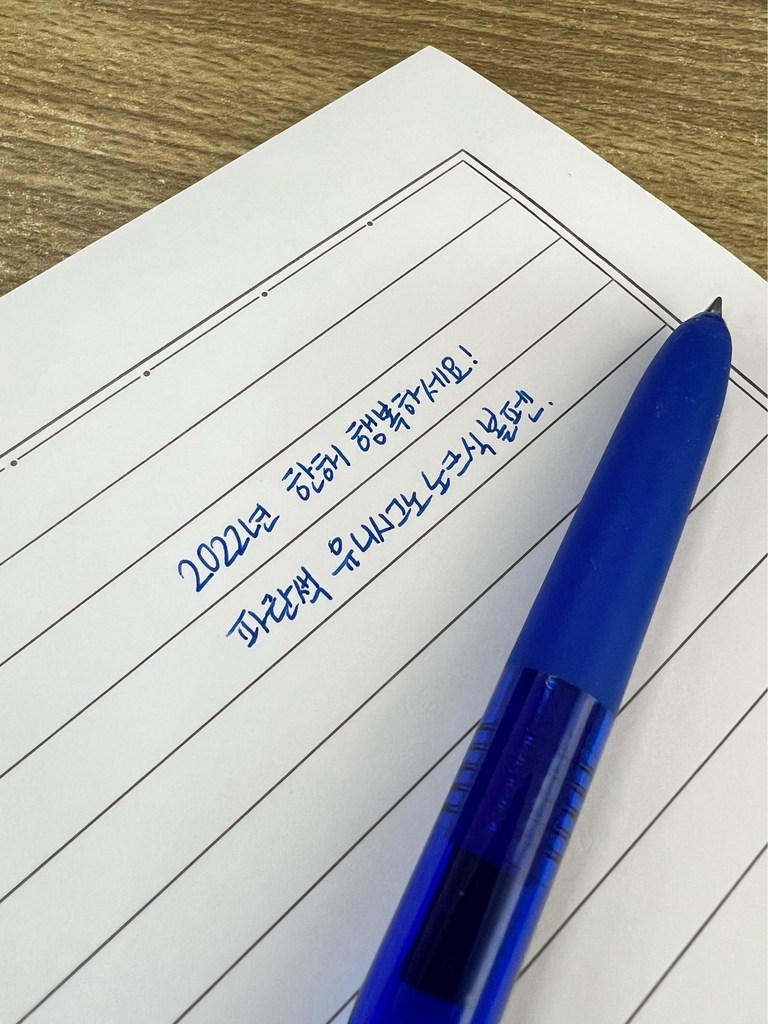 2022년 한해 행복하세요!
파란색 유니시그노 노크식 볼펜.